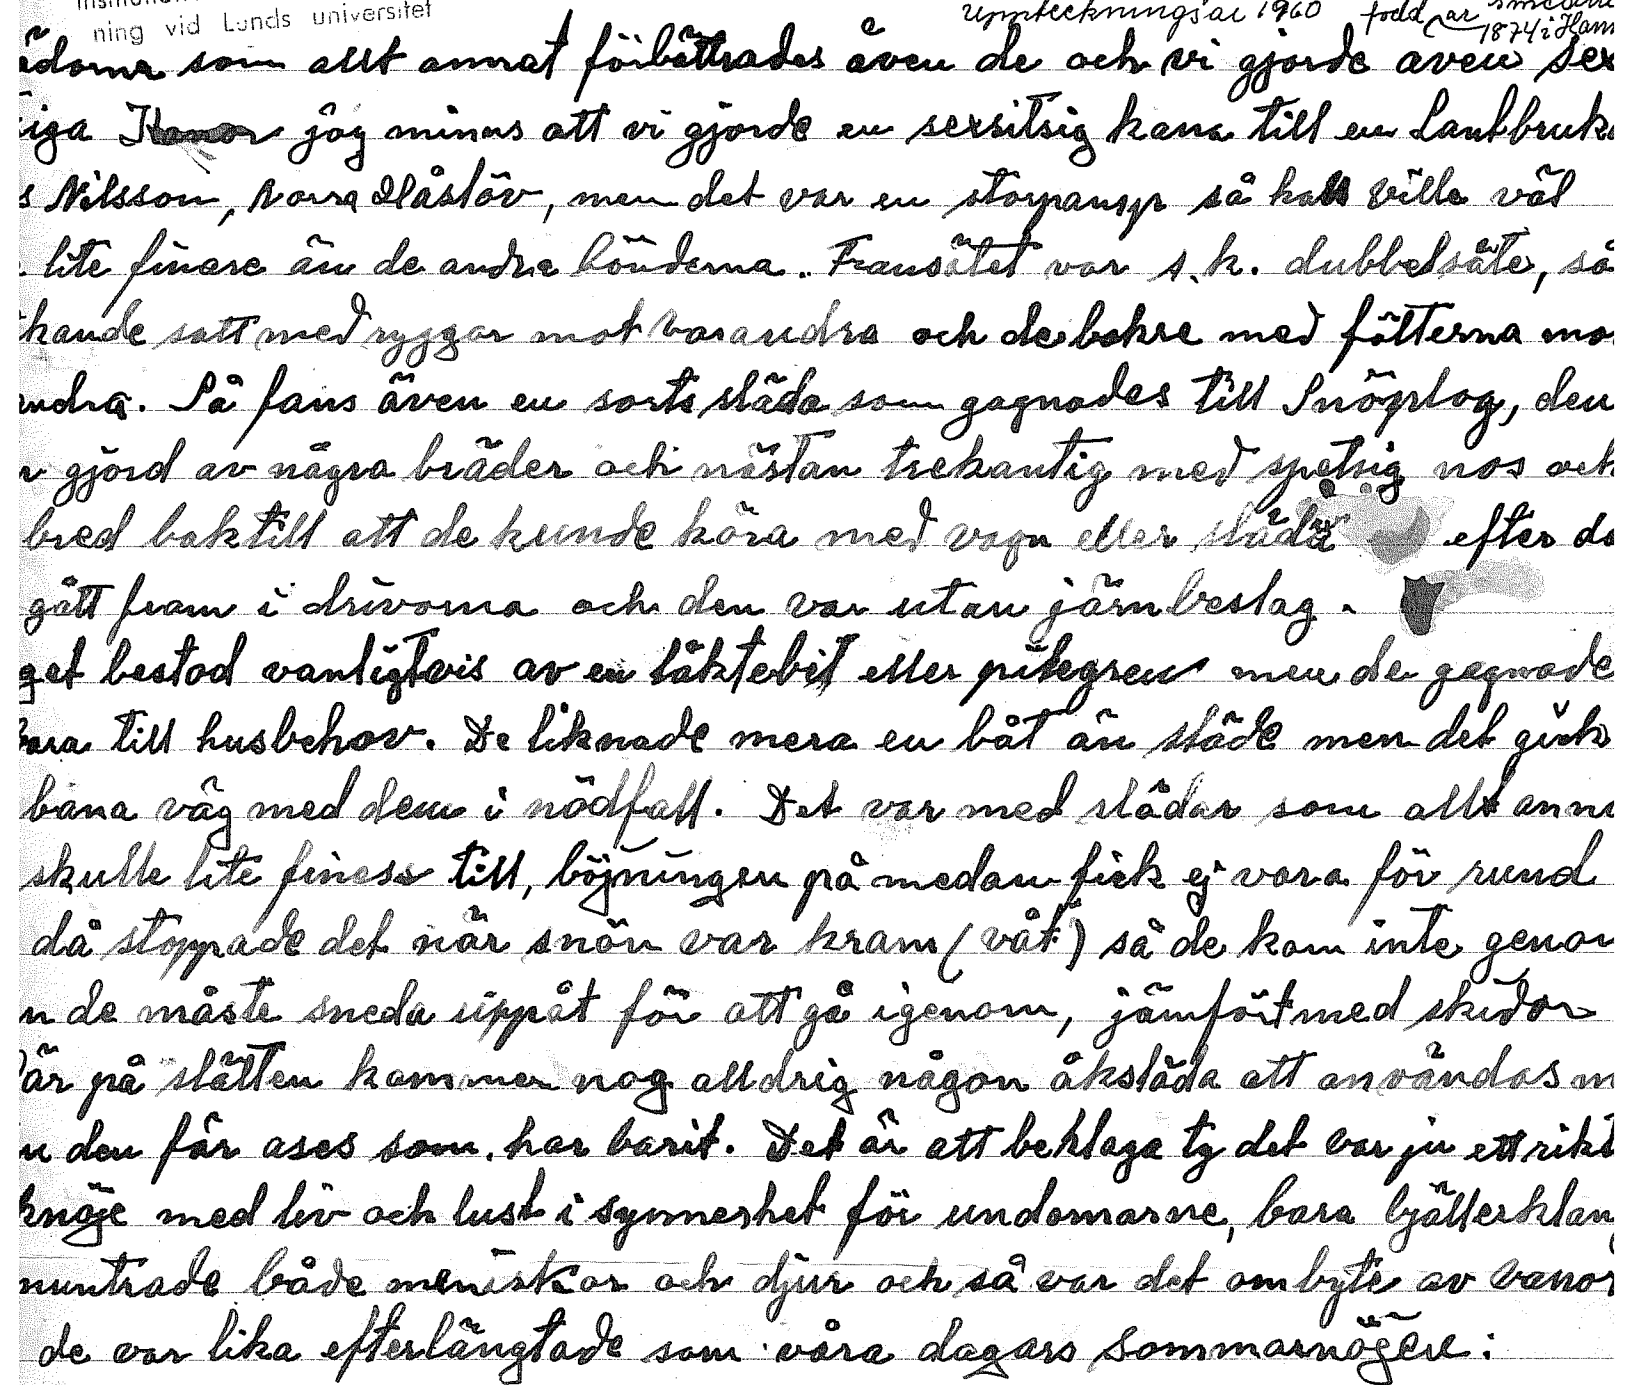 ning vid Lunds universitet
Uppteckningsår 1960 född år
1874 i
som allt annat förbättrades även de och vi gjorde även sex
iga Kanor jag minns att vi gjorde en sexsitsig kana till en Lantbruk
s Nilsson, Norra Håslöv, men det var en storpamp så han ville väl
lite finare än de andra bönderna. Framsätet var s.k. dubbelsäte, så
kande satt med ryggar mot varandra och de bakre med fötterna mo
andra. Så fans även en sorts släda som gagnades till Snöplog, den
r gjord av några bräder och nästan trekantig med spetsig nos och
bred baktill att de kunde köra med vagn eller släda efter de
gått fram i drivorna och den var utan järnbeslag.
get bestod vanligtvis av en läktebit eller pilegren men de gagnade
bara till husbehov. De liknade mera en båt än släde men det gick
bana väg med dem i nödfall. Det var med slädar som allt ann
skulle lite finess till, böjningen på medan fick ej vara för rund
då stoppade det när snön var kram (våt) så de kom inte genom
n de måste sneda uppåt för att gå igenom, jämfört med skidor
är på slätten kommer nog alldrig någon åksläda att användas m
n den får ases som har varit. Det är att beklaga ty det var ju ett rikt
knöje med liv och lust i synnerhet för undomarne, bara bjällerklan
muntrade både meniskor och djur och så var det ombyte av vanor
de var lika efterlängtade som våra dagars sommarnögen: